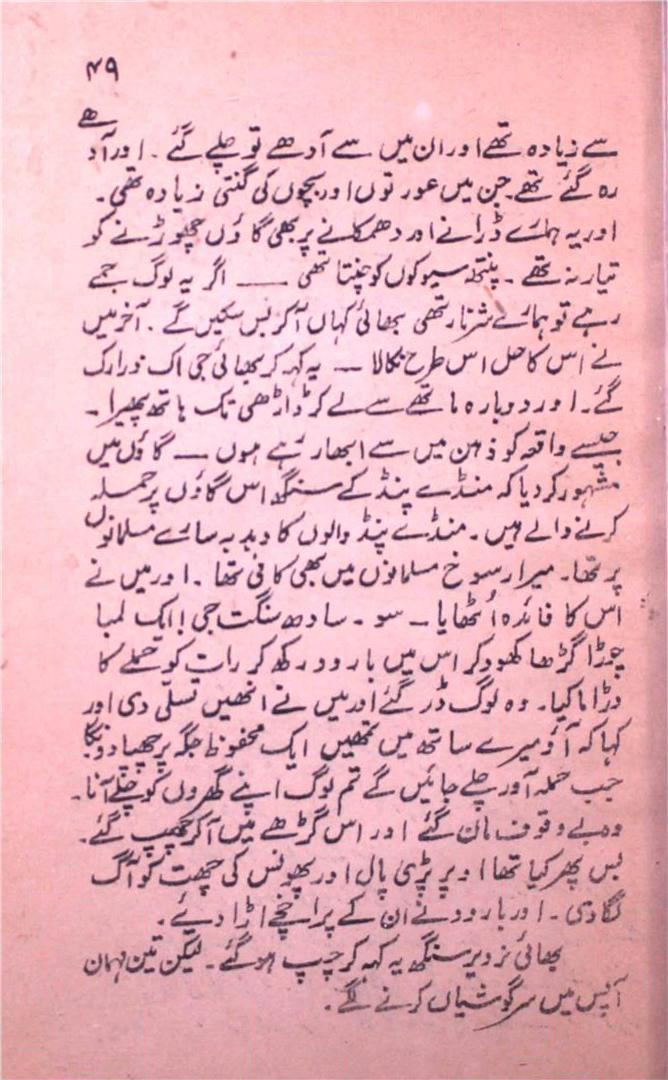 ۴۹
سے زیادہ تھے اور ان میں سے آدھے تو چلے گئے ۔ اور آدھے
رہ گئے تھے جن میں عورتوں اور بچوں کی گنتی زیادہ تھی ۔
اور یہ ہمارے ڈرانے اور دھمکانے پر بھی گاؤں چھوڑنے کو
تیار نہ تھے ۔ پنتھ سیوکوں کو چنتا تھی ـــــ اگر یہ لوگ جمے
رہے تو ہمارے شرنارتھی بھائی کہاں آکر بس سکیں گے ۔ آخر میں
نے اس کا حل اس طرح نکالا ــ یہ کہہ کر بھائی جی اک ذرا رک
گئے ۔ اور دوبارہ ماتھے سے لے کر ڈاڑھی تک ہاتھ پھیرا ۔
جیسے واقعہ کو ذہن میں سے ابھار رہے ہوں ــ گاؤں میں
مشہور کر دیا کہ منڈے پنڈ کے سنگھ اس گاؤں پر حملہ
کرنے والے ہیں ۔ منڈے پنڈ والوں کا دبدبہ سارے مسلمانوں
پر تھا ۔ میرا رسوخ مسلمانوں میں بھی کافی تھا ۔ اور میں نے
اس کا فائدہ اُٹھایا ــ سو ۔ سادھ سنگت جی ! ایک لمبا
چوڑا گڑھا کھود کر اس میں بارود رکھ کر رات کو حملے کا
ڈراما کیا ۔ وہ لوگ ڈر گئے اور میں نے انھیں تسلی دی اور
کہا کہ آؤ میرے ساتھ میں تمھیں ایک محفوظ جگہ پر چھپا دونگا
جب حملہ آور چلے جائیں گے تم لوگ اپنے گھروں کو چلے آنا ۔
وہ بے وقوف مان گئے اور اس گڑھے میں آکر چھپ گئے ۔
بس پھر کیا تھا اوپر پڑی پال اور پھونس کی چھت کو آگ
لگا دی ۔ اور بارود نے ان کے پراخچے اڑا دیئے ۔
بھائی نرویر سنگھ یہ کہہ کر چپ ہو گئے ۔ لیکن تین مہمان
آپس میں سرگوشیاں کرنے لگے ۔